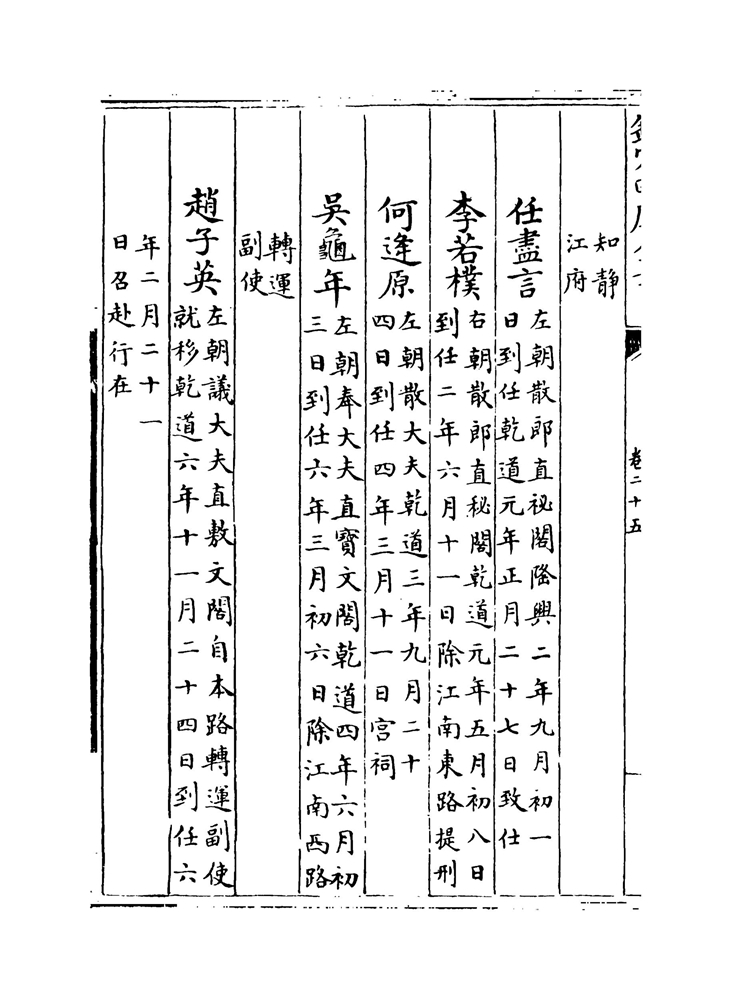 卷二十五
知静
江府
任盡言
左朝散郎直祕閣隆興二年九月初一
日到任乾道元年正月二十七日致仕
李若樸
右朝散郎直秘閣乾道元年五月初八日
到任二年六月十一日除江南東路提刑
何逢原
左朝散大夫乾道三年九月二十
四日到任四年三月十一日宫祠
吳龜年
左朝奉大夫直寶文閣乾道四年六月初
三日到任六年三月初六日除江南西路
轉運
副使
趙子英
左朝議大夫直敷文閣自本路轉運副使
就移乾道六年十一月二十四日到任六
年二月二十一
日召赴行在